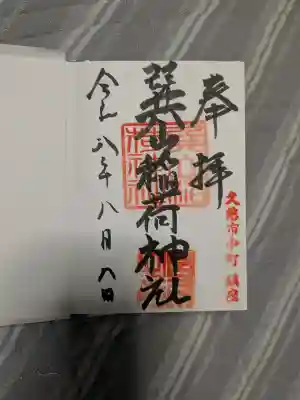 奉拝
久慈市中町 鎮座
巽山稲荷神社
令和八年八月八日